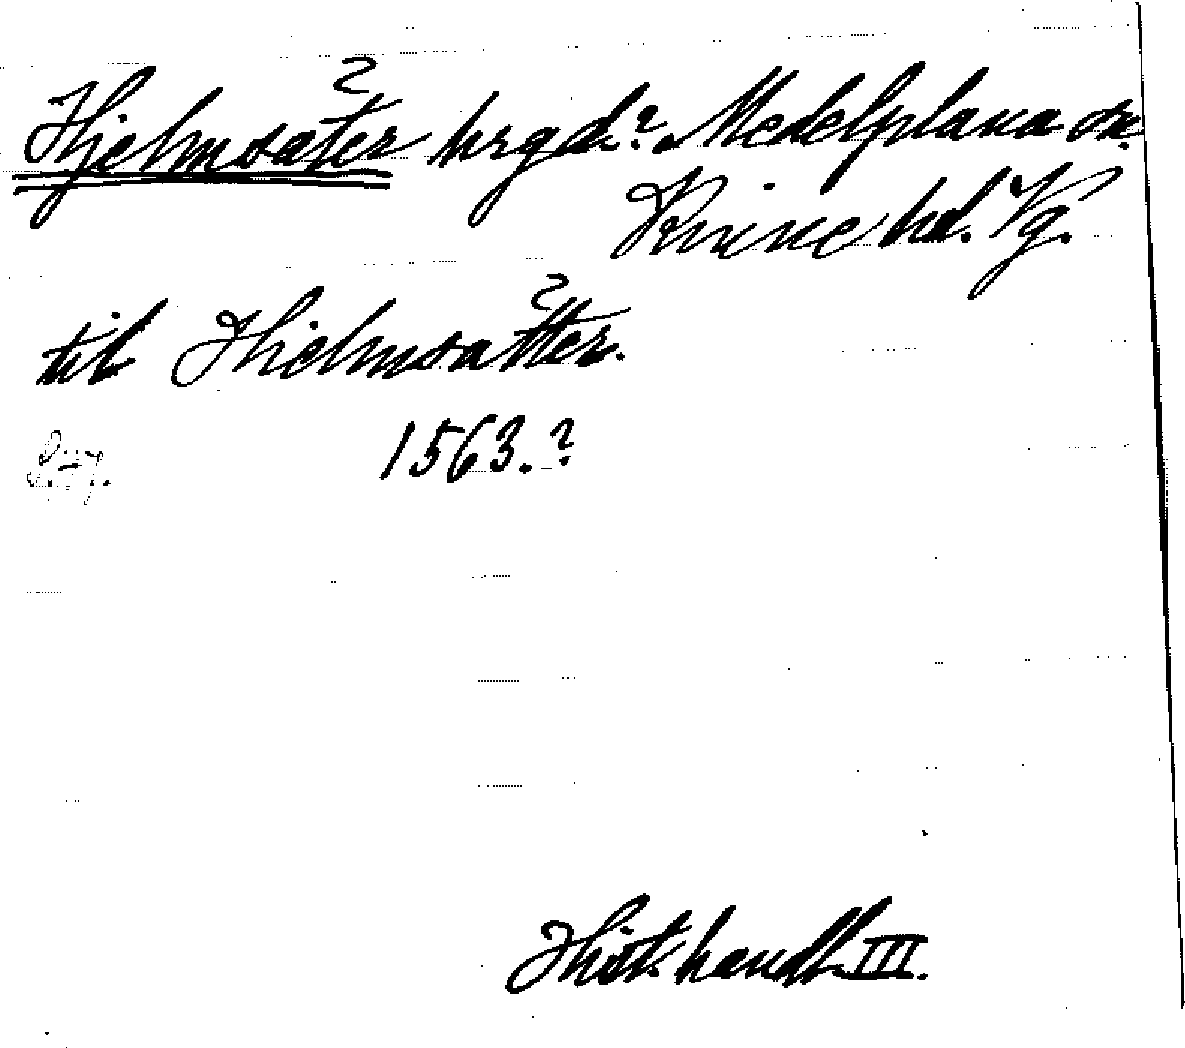 Hjelmsäter hrgd? Medelplana sn.
Kinne hd. Vg.
til Hielmsätter.
1563.?
S. 77.
Hist. handl. III.